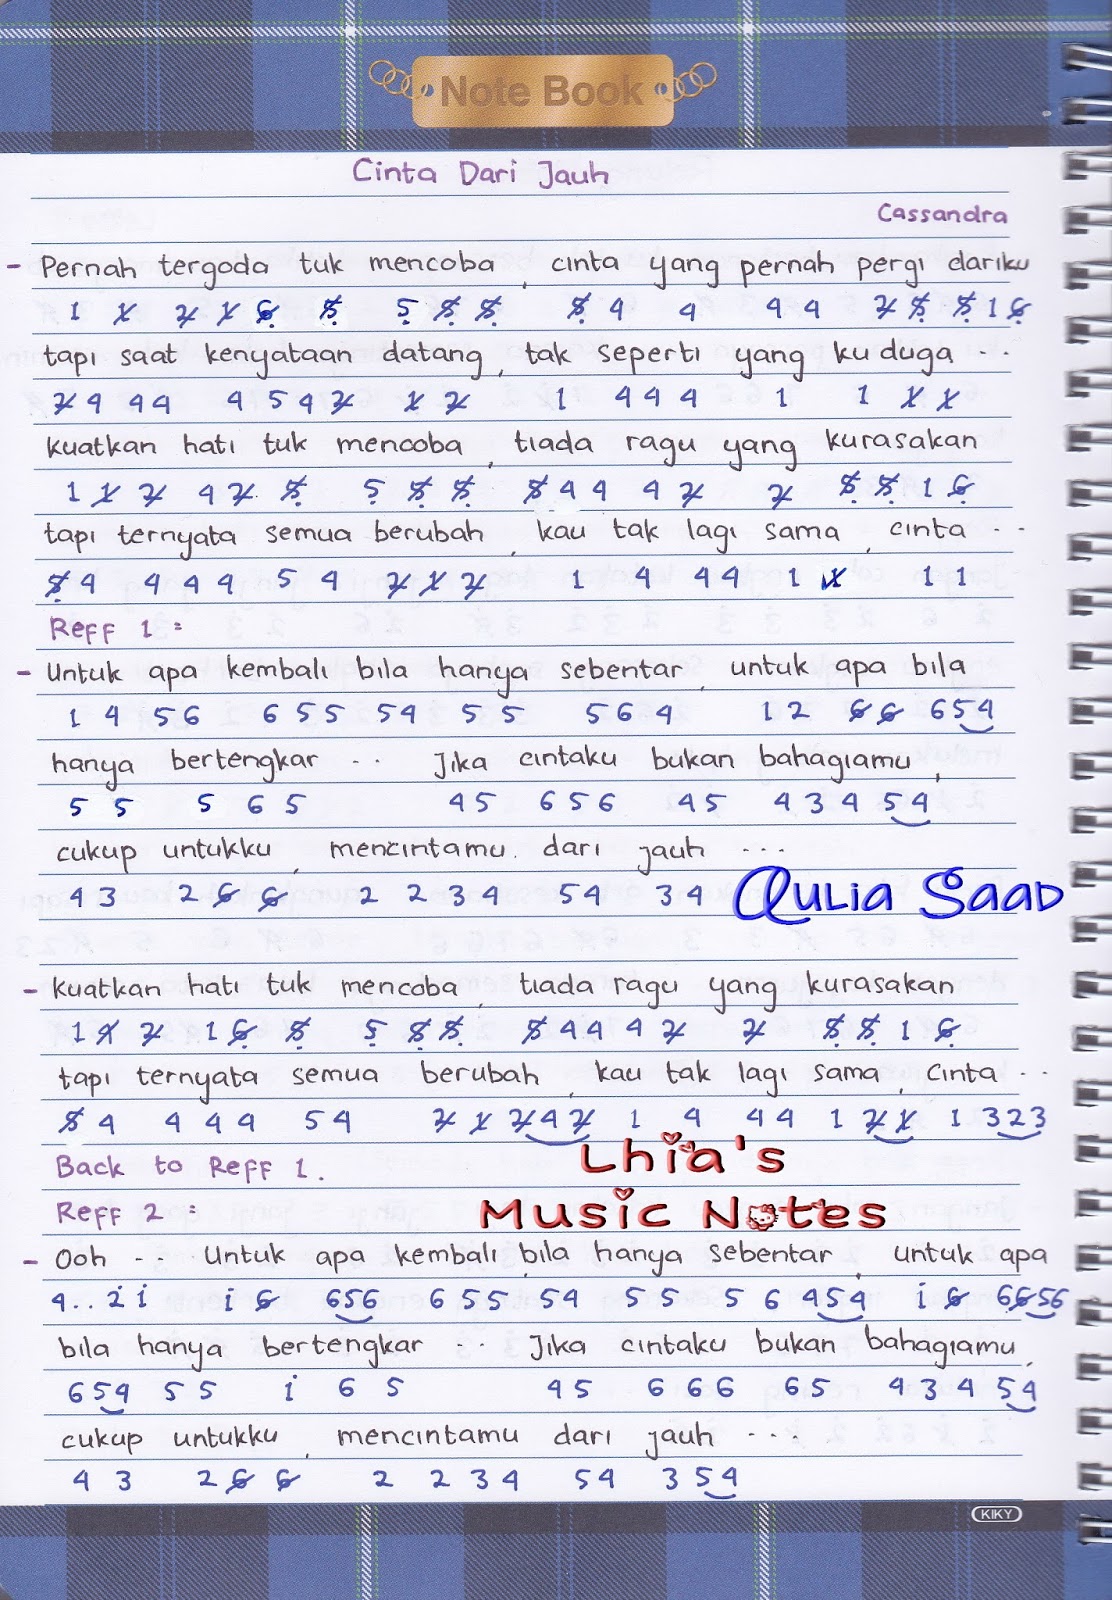 Note Book
Cinta Dari Jauh
Cassandra
- Pernah tergoda tuk mencoba, cinta yang pernah pergi dariku
1 1̸ 2̸ 1̸ 6̸̣ 5̸̣ 5̣ 5̸̣ 5̸̣ 5̸̣ 4 4 4 4 2̸ 5̸̣ 5̸̣ 1 6̸̣
tapi saat kenyataan datang, tak seperti yang ku duga ..
2̸ 4 4 4 4 5 4 2̸ 1̸ 2̸ 1 4 4 4 1 1 1̸ 1̸
kuatkan hati tuk mencoba, tiada ragu yang kurasakan
1 1̸ 2̸ 4 2̸ 5̸̣ 5̣ 5̸̣ 5̸̣ 5̸̣ 4 4 4 2̸ 2̸ 5̸̣ 5̸̣ 1 6̸̣
tapi ternyata semua berubah, kau tak lagi sama, cinta ..
5̸̣ 4 4 4 4 5 4 2̸ 1̸ 2̸ 1 4 4 4 1 1̸ 1 1
Reff 1 :
- Untuk apa kembali bila hanya sebentar, untuk apa bila
1 4 5 6 6 5 5 5 4 5 5 5 6 4 1 2 6̸ 6̸ 6 5 4
hanya bertengkar .. Jika cintaku bukan bahagiamu,
5 5 5 6 5 4 5 6 5 6 4 5 4 3 4 5 4
cukup untukku, mencintamu dari jauh ...
4 3 2 6̸ 6̸ 2 2 3 4 5 4 3 4
Qulia Saad
- kuatkan hati tuk mencoba, tiada ragu yang kurasakan
1 1̸ 2̸ 1 6̸̣ 5̸̣ 5̣ 5̸̣ 5̸̣ 5̸̣ 4 4 4 2̸ 2̸ 5̸̣ 5̸̣ 1 6̸̣
tapi ternyata semua berubah, kau tak lagi sama, cinta ..
5̸̣ 4 4 4 4 5 4 2̸ 1̸ 2̸ 4 2̸ 1 4 4 4 1 2̸ 1̸ 1 3 2 3
Back to Reff 1.
Lhia's
Music Notes
Reff 2 :
- Ooh .. Untuk apa kembali bila hanya sebentar, untuk apa
4 .. 2̇ i i 6̸ 656 6 5 5 5 4 5 5 5 6 454 i 6̸ 66̸56
bila hanya bertengkar ... Jika cintaku bukan bahagiamu,
6 5 4 5 5 i 6 5 4 5 6 6 6 6 5 4 3 4 5 4
cukup untukku, mencintamu dari jauh ....
4 3 2 6̸ 6̸ 2 2 3 4 5 4 3 5 4
KIKY